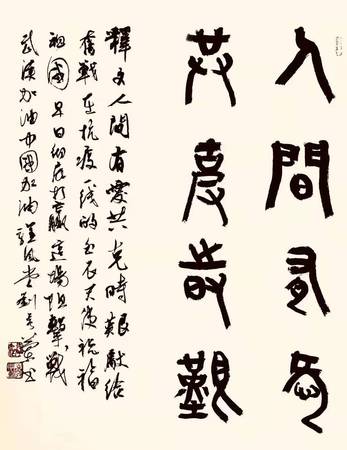 人間有愛
共克時艱
釋文人間有愛共克時艱獻給
奮戰在抗疫一線的白衣天使祝福
祖國早日彻底打赢這場阻擊戰
武漢加油中國加油